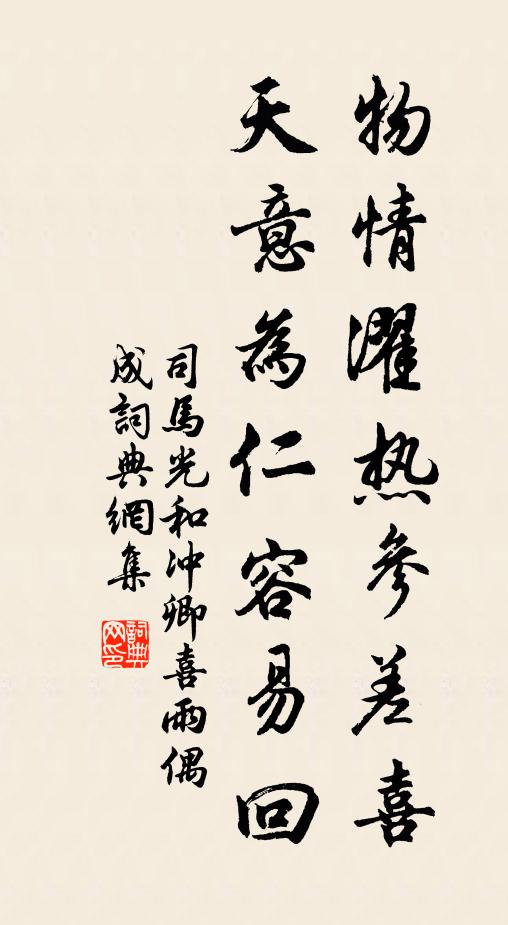 物情濯热參差喜
天意為仁容易回
司馬光和冲卿喜雨偶
成詞典網集
詞典
网印